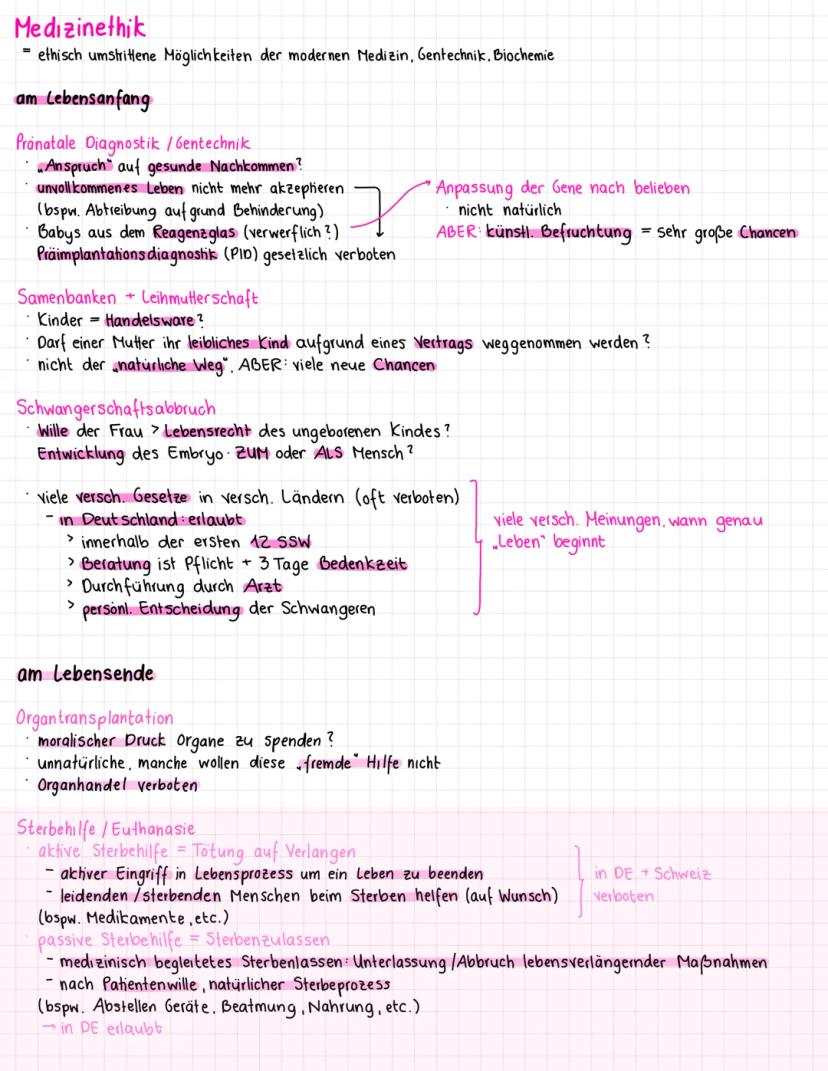 Medizinethik
= ethisch umstrittene Möglichkeiten der modernen Medizin, Gentechnik, Biochemie
am Lebensanfang
Pränatale Diagnostik / Gentechnik
· „Anspruch“ auf gesunde Nachkommen?
· unvollkommenes Leben nicht mehr akzeptieren
(bspw. Abtreibung aufgrund Behinderung)
· Babys aus dem Reagenzglas (verwerflich?)
Präimplantationsdiagnostik (PID) gesetzlich verboten
Anpassung der Gene nach belieben
· nicht natürlich
ABER: künstl. Befruchtung = sehr große Chancen
Samenbanken + Leihmutterschaft
· Kinder = Handelsware?
· Darf einer Mutter ihr leibliches Kind aufgrund eines Vertrags weggenommen werden?
· nicht der „natürliche Weg“, ABER: viele neue Chancen
Schwangerschaftsabbruch
· Wille der Frau > Lebensrecht des ungeborenen Kindes?
Entwicklung des Embryo: ZUM oder ALS Mensch?
· viele versch. Gesetze in versch. Ländern (oft verboten)
- in Deutschland: erlaubt
> innerhalb der ersten 12 SSW
> Beratung ist Pflicht + 3 Tage Bedenkzeit
> Durchführung durch Arzt
> persönl. Entscheidung der Schwangeren
viele versch. Meinungen, wann genau
„Leben“ beginnt
am Lebensende
Organtransplantation
· moralischer Druck Organe zu spenden?
· unnatürliche, manche wollen diese „fremde“ Hilfe nicht
· Organhandel verboten
Sterbehilfe / Euthanasie
· aktive Sterbehilfe = Tötung auf Verlangen
- aktiver Eingriff in Lebensprozess um ein Leben zu beenden
- leidenden / sterbenden Menschen beim Sterben helfen (auf Wunsch)
(bspw. Medikamente, etc.)
in DE + Schweiz
verboten
· passive Sterbehilfe = Sterbenzulassen
- medizinisch begleitetes Sterbenlassen: Unterlassung / Abbruch lebensverlängernder Maßnahmen
- nach Patientenwille, natürlicher Sterbeprozess
(bspw. Abstellen Geräte, Beatmung, Nahrung, etc.)
→ in DE erlaubt